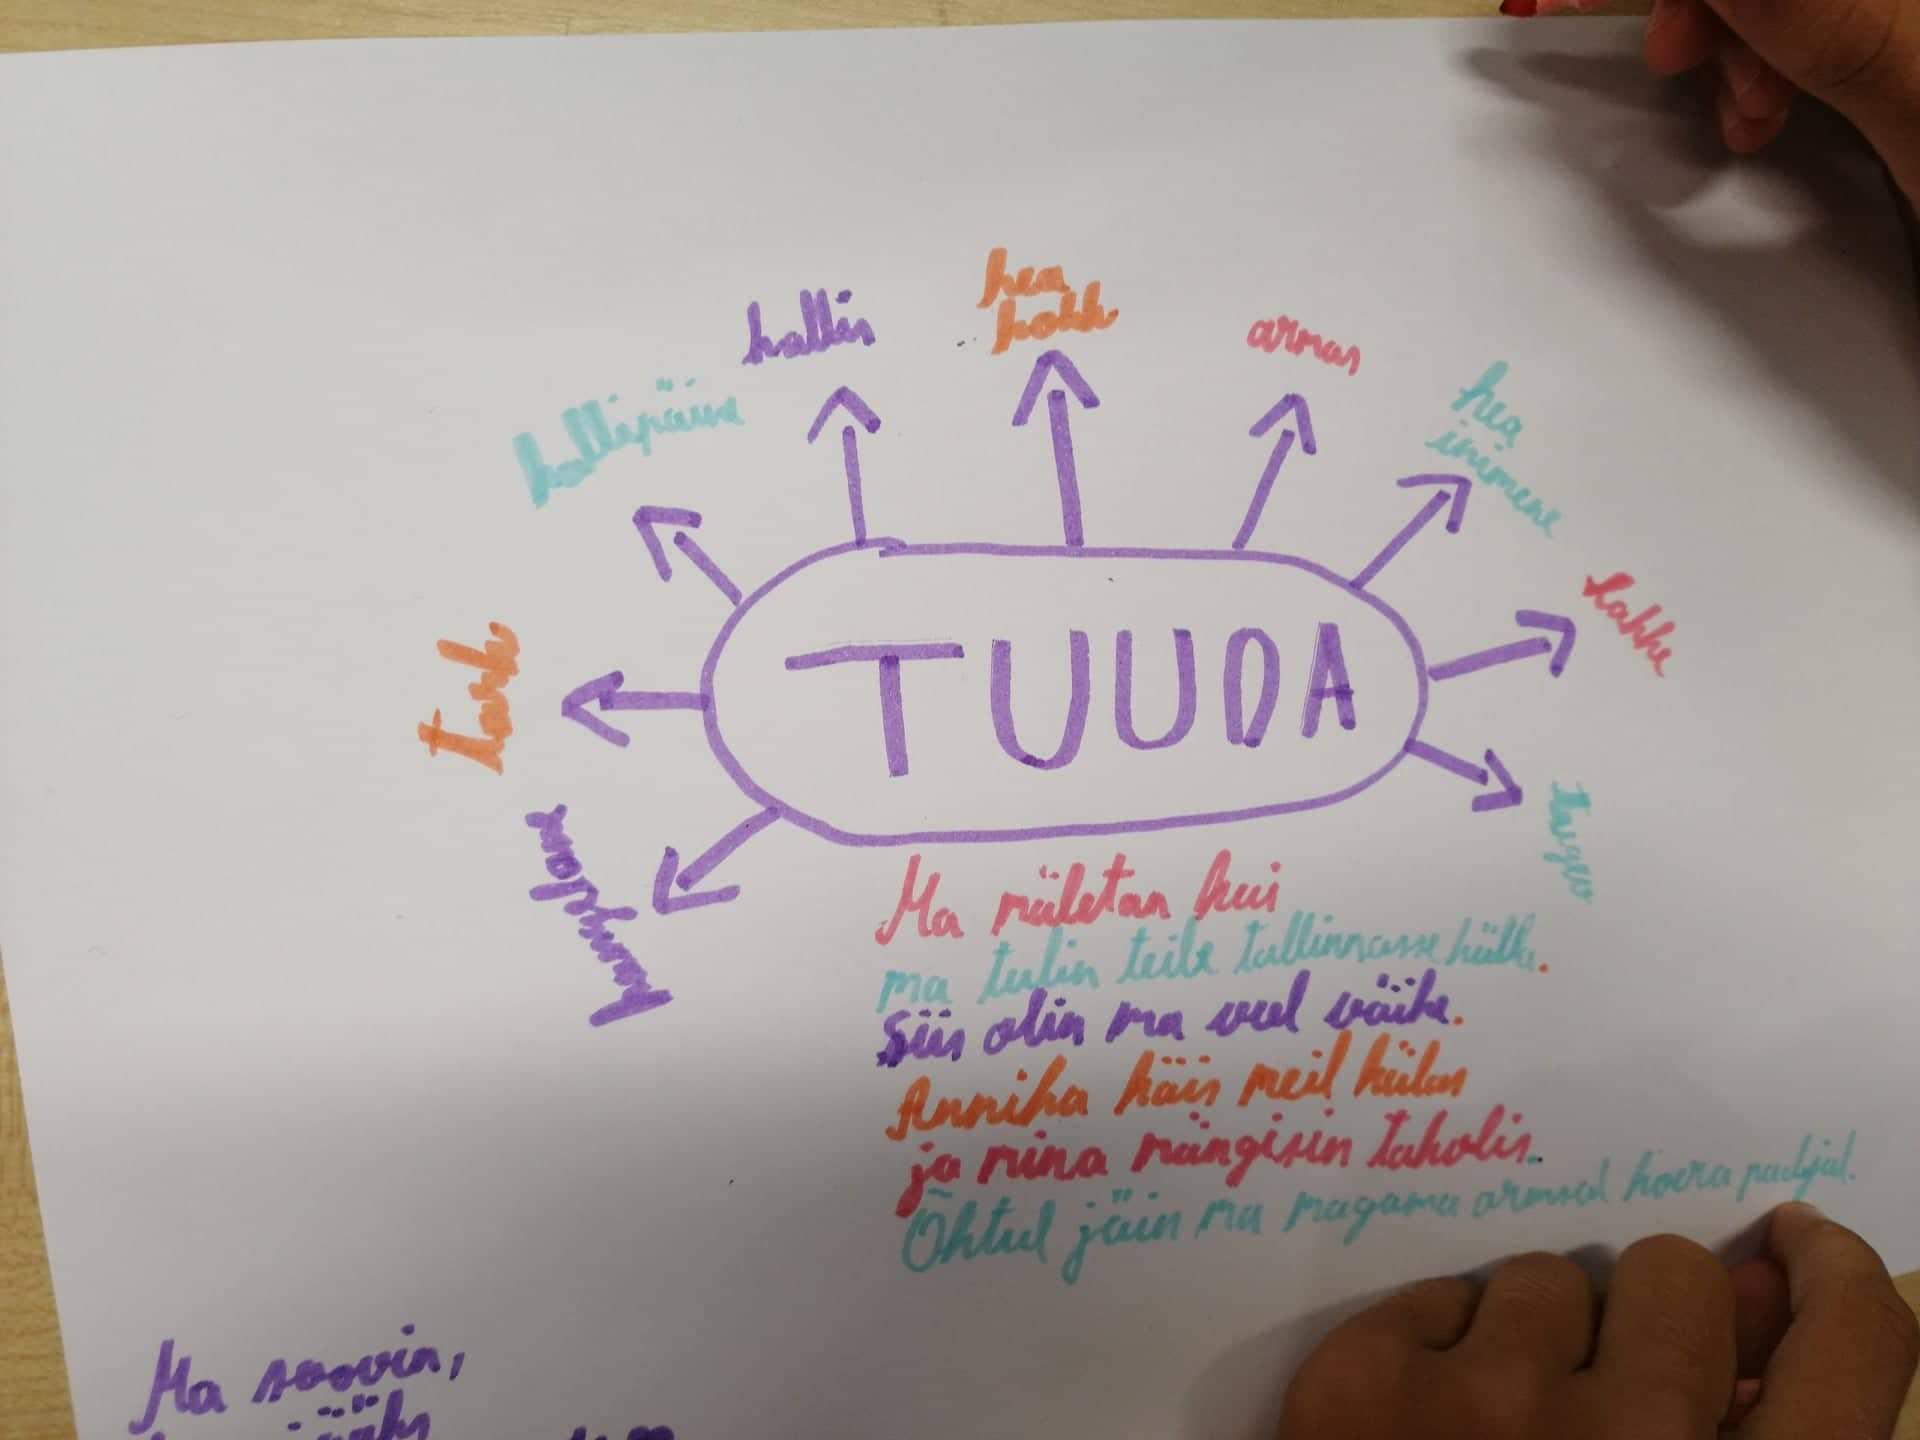 hallis
hea
kokk
armas
kallipäine
hea
inimene
lahke
tark
TUUDA
tugev
Ma mäletan kui
ma tulin teile tallinnasse külla.
Siis olin ma veel väike.
Annika käis meil külas
ja mina mängisin taholis.
Õhtul jäin ma magama armsal koera padjal.
Ma soovin,